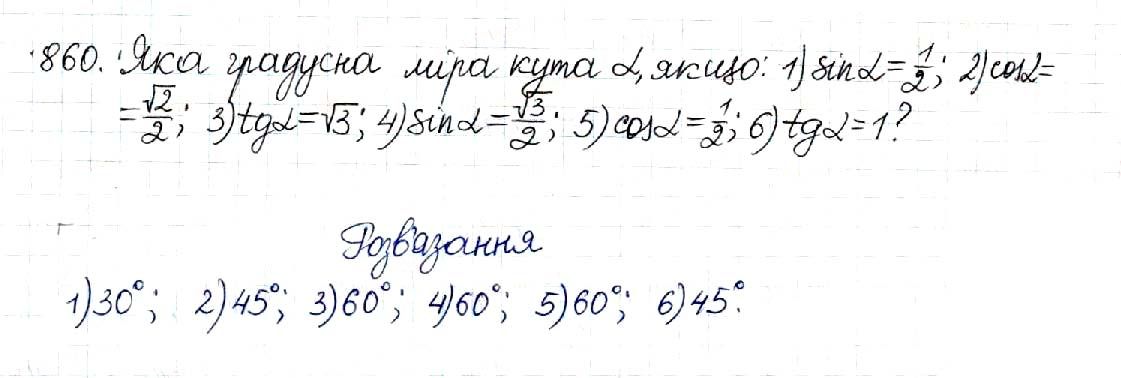 860. Яка градусна міра кута α, якщо: 1) sin α = 1/2; 2) cos α =
= √2/2; 3) tg α = √3; 4) sin α = √3/2; 5) cos α = 1/2; 6) tg α = 1?
Розв'язання
1) 30°; 2) 45°; 3) 60°; 4) 60°; 5) 60°; 6) 45°.